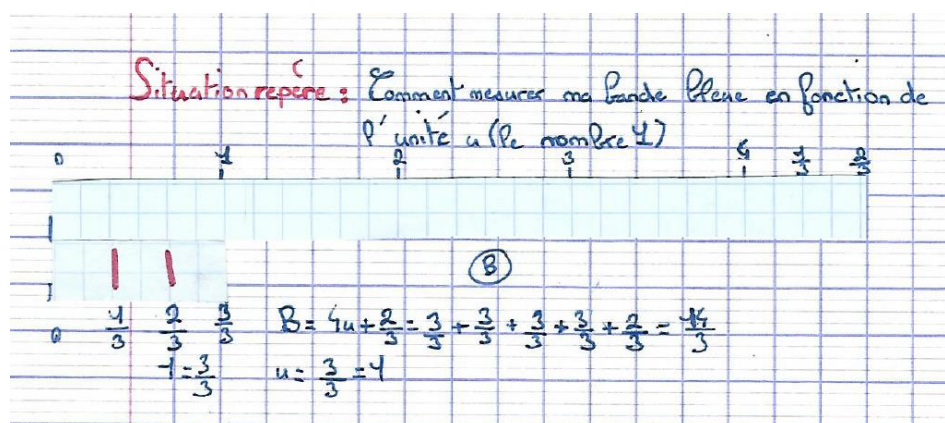 Situation repère : Comment mesurer ma bande bleue en fonction de
l'unité u (le nombre 1)
0 1 2 3 4 1/3 2/3
B
0 1/3 2/3 3/3 B = 4u + 2/3 = 3/3 + 3/3 + 3/3 + 3/3 + 2/3 = 14/3
1 = 3/3 u = 3/3 = 1